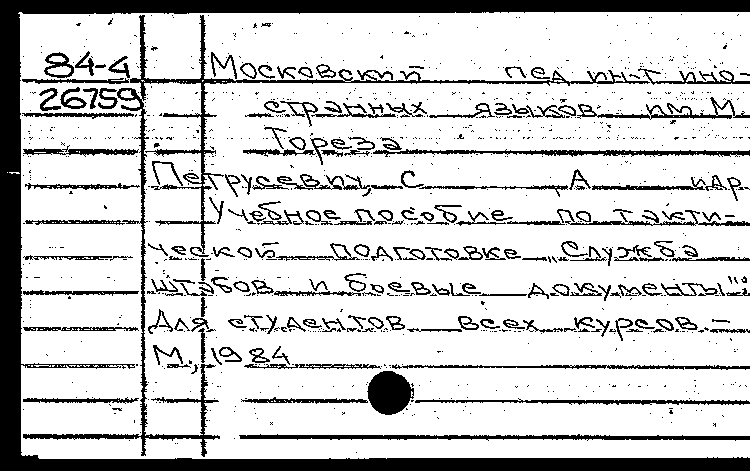 84-4 Московский пед. ин-т ино-
26759 странных языков им. М.
Тореза
Петрусевич, С. А. и др.
Учебное пособие по такти-
ческой подготовке „Служба
штабов и боевые документы":
Для студентов всех курсов. -
М., 1984